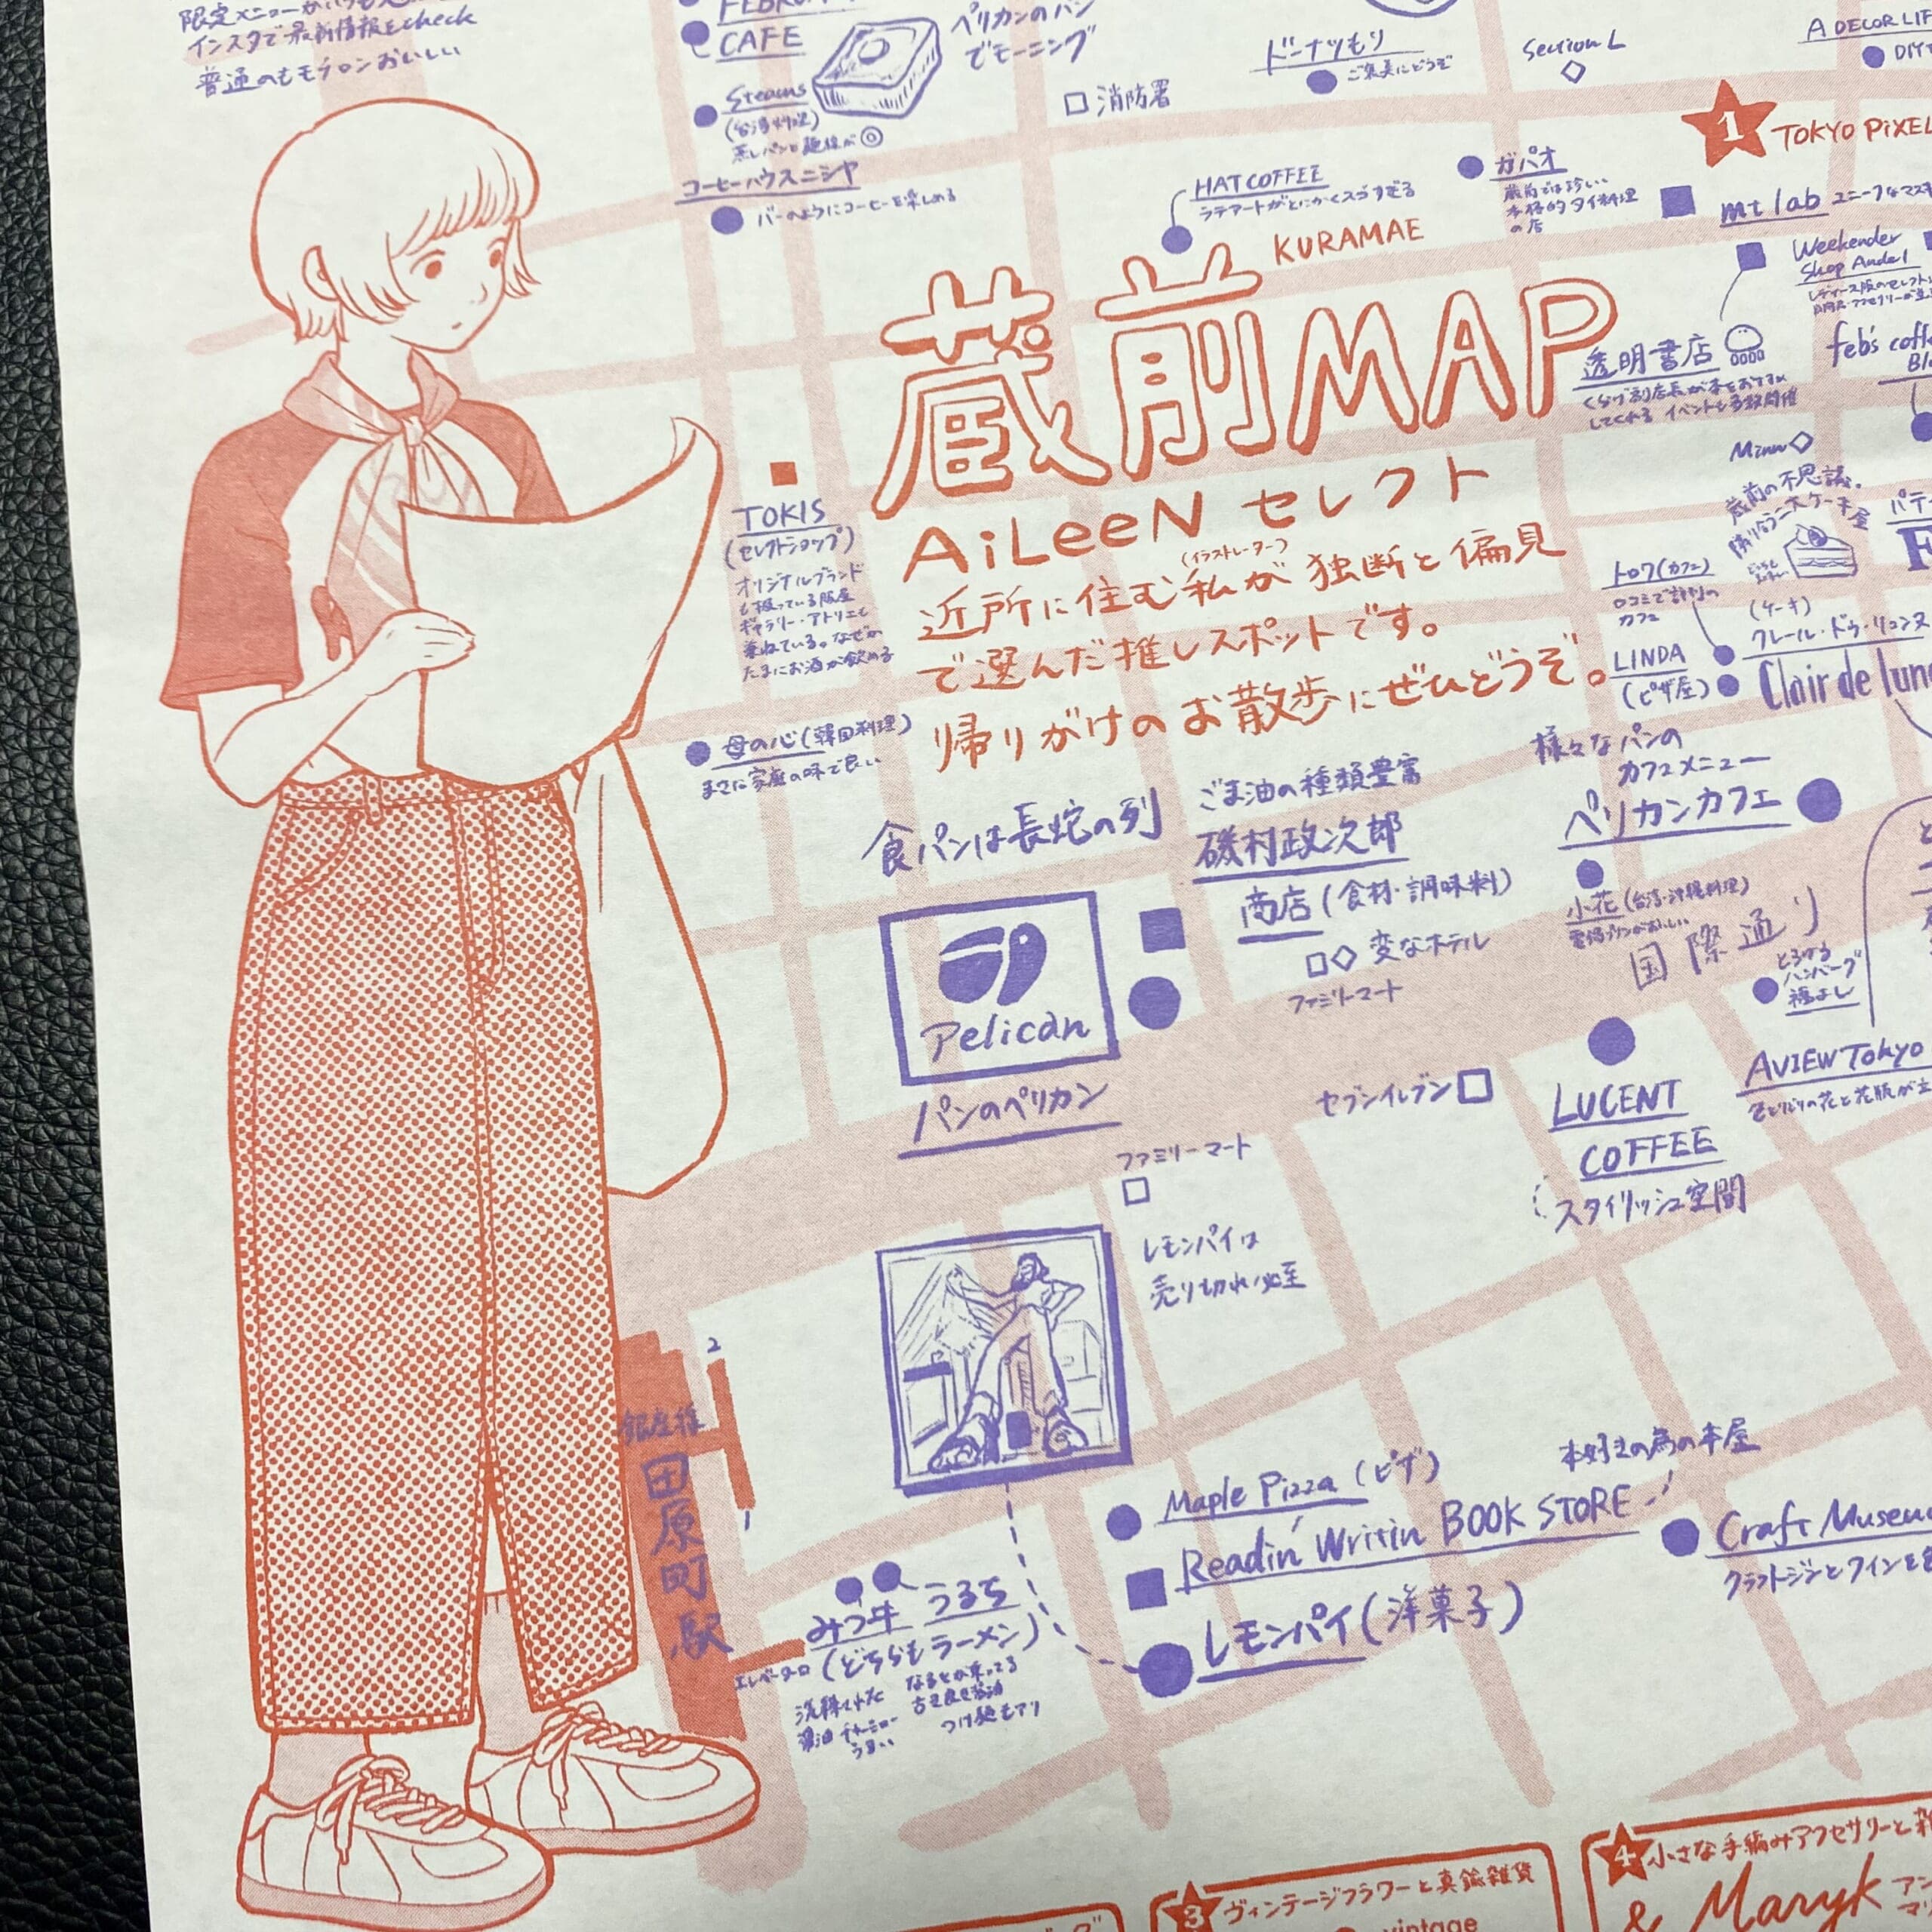 限定メニュー
インスタで最新情報をcheck
普通のもモチロンおいしい
CAFE
ペリカンのパン
でモーニング
Steams
(台湾料理)
蒸しパンと麺線が◎
コーヒーハウスニシヤ
バーのようにコーヒーを楽しめる
消防署
ドーナツもり
ご褒美にどうぞ
Section L
A DECOR LIF
DIY
1
TOKYO PiXEL
HAT COFFEE
ラテアートがとにかくスゴすぎる
ガパオ
蔵前では珍しい
本格的タイ料理
の店
mt lab
ユニークなマス
Weekender
Shop Andel
KURAMAE
蔵前MAP
透明書店
くらげ副店長が本をおすすめ
してくれる イベントも多数開催
feb's coffe
AiLeeN セレクト
(イラストレーター)
近所に住む私が独断と偏見
で選んだ推しスポットです。
帰りがけのお散歩にぜひどうぞ。
TOKIS
(セレクトショップ)
オリジナルブランド
も扱っている服屋
ギャラリー・アトリエも
兼ねている。なぜか
たまにお酒が飲める
母の心(韓国料理)
まさに家庭の味で良い
Minn
蔵前の不思議。
トロワ(カフェ)
口コミで評判の
カフェ
(ケーキ)
クレール・ドゥ・リュンヌ
Clair de lun
LINDA
(ピザ屋)
食パンは長蛇の列
Pelican
パンのペリカン
ごま油の種類豊富
磯村政次郎
商店(食材・調味料)
変なホテル
ファミリーマート
様々なパンの
カフェメニュー
ペリカンカフェ
小花(台湾・沖縄料理)
国際通り
とろける
ハンバーグ
福よし
セブンイレブン
LUCENT
COFFEE
スタイリッシュ空間
AVIEW Tokyo
ファミリーマート
レモンパイは
売り切れ必至
2
銀座線
田原町駅
1
エレベーター口
みつ牛 うるち
(どちらもラーメン)
洗練された
醤油 チャーシュー
うまい
つけ麺もアリ
Maple Pizza (ピザ)
本好きの為の本屋
Readin' Writin BOOK STORE
レモンパイ(洋菓子)
Craft Museu
クラフトジンとワインと
3
ヴィンテージフラワーと真鍮雑貨
vintage
4
小さな手編みアクセサリーと
& Maryk